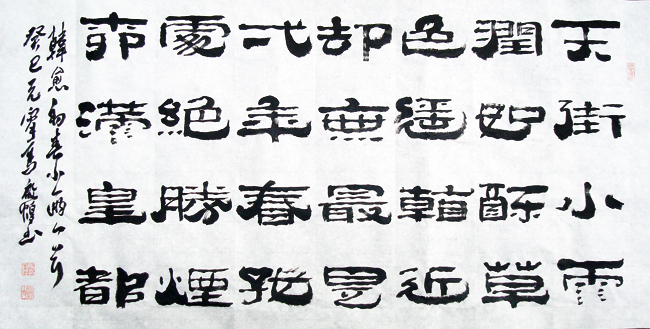 天街小雨
潤如酥草
色遙看近
却無最是
弌年春好
處絕勝煙
柳滿皇都
韓愈初春小
癸巳元宵